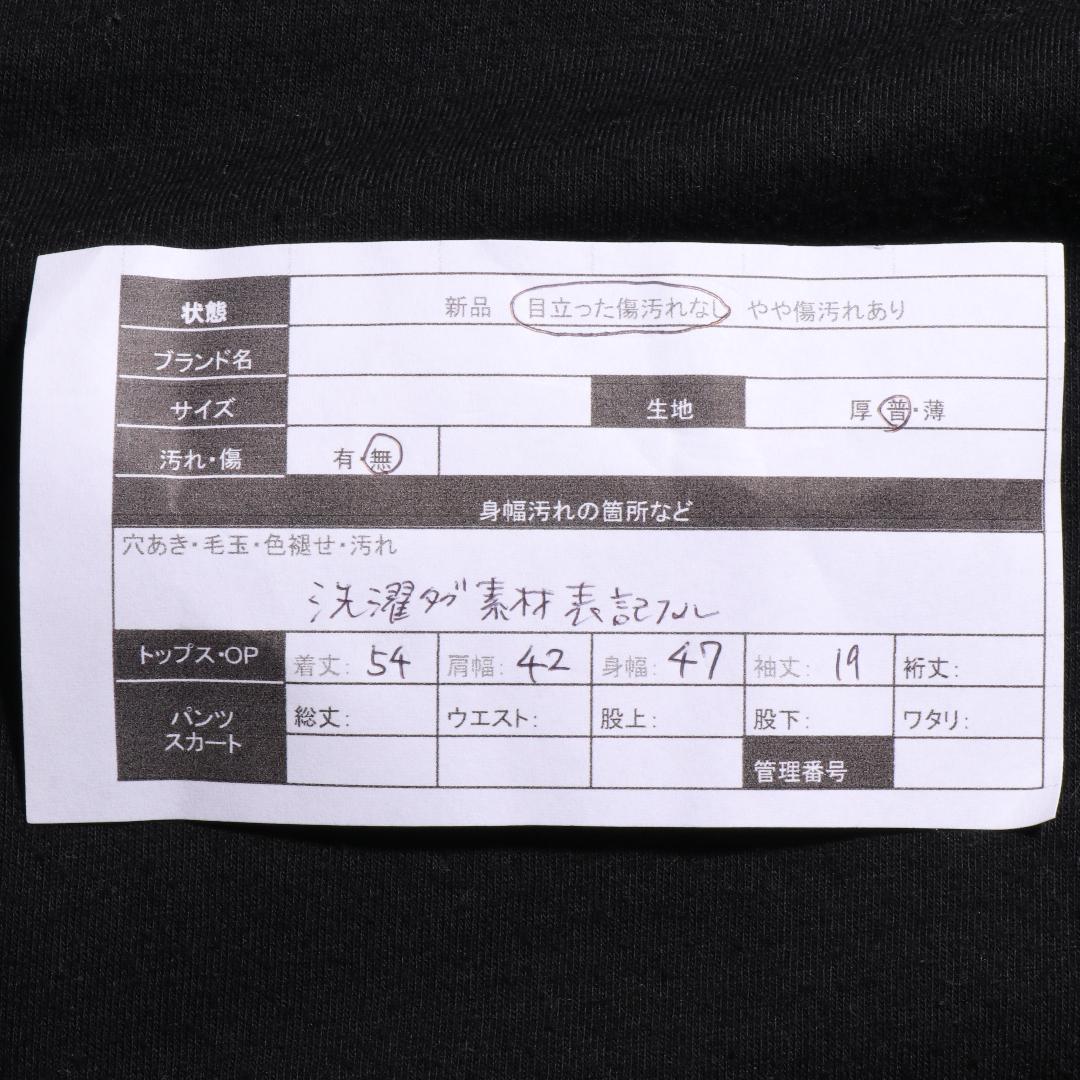 状態 新品 目立った傷汚れなし やや傷汚れあり
ブランド名
サイズ 生地 厚・普・薄
汚れ・傷 有・無
身幅汚れの箇所など
穴あき・毛玉・色褪せ・汚れ
洗濯タグ素材表記ナシ
トップス・OP 着丈: 54 肩幅: 42 身幅: 47 袖丈: 19 裄丈:
パンツ 総丈: ウエスト: 股上: 股下: ワタリ:
スカート
管理番号